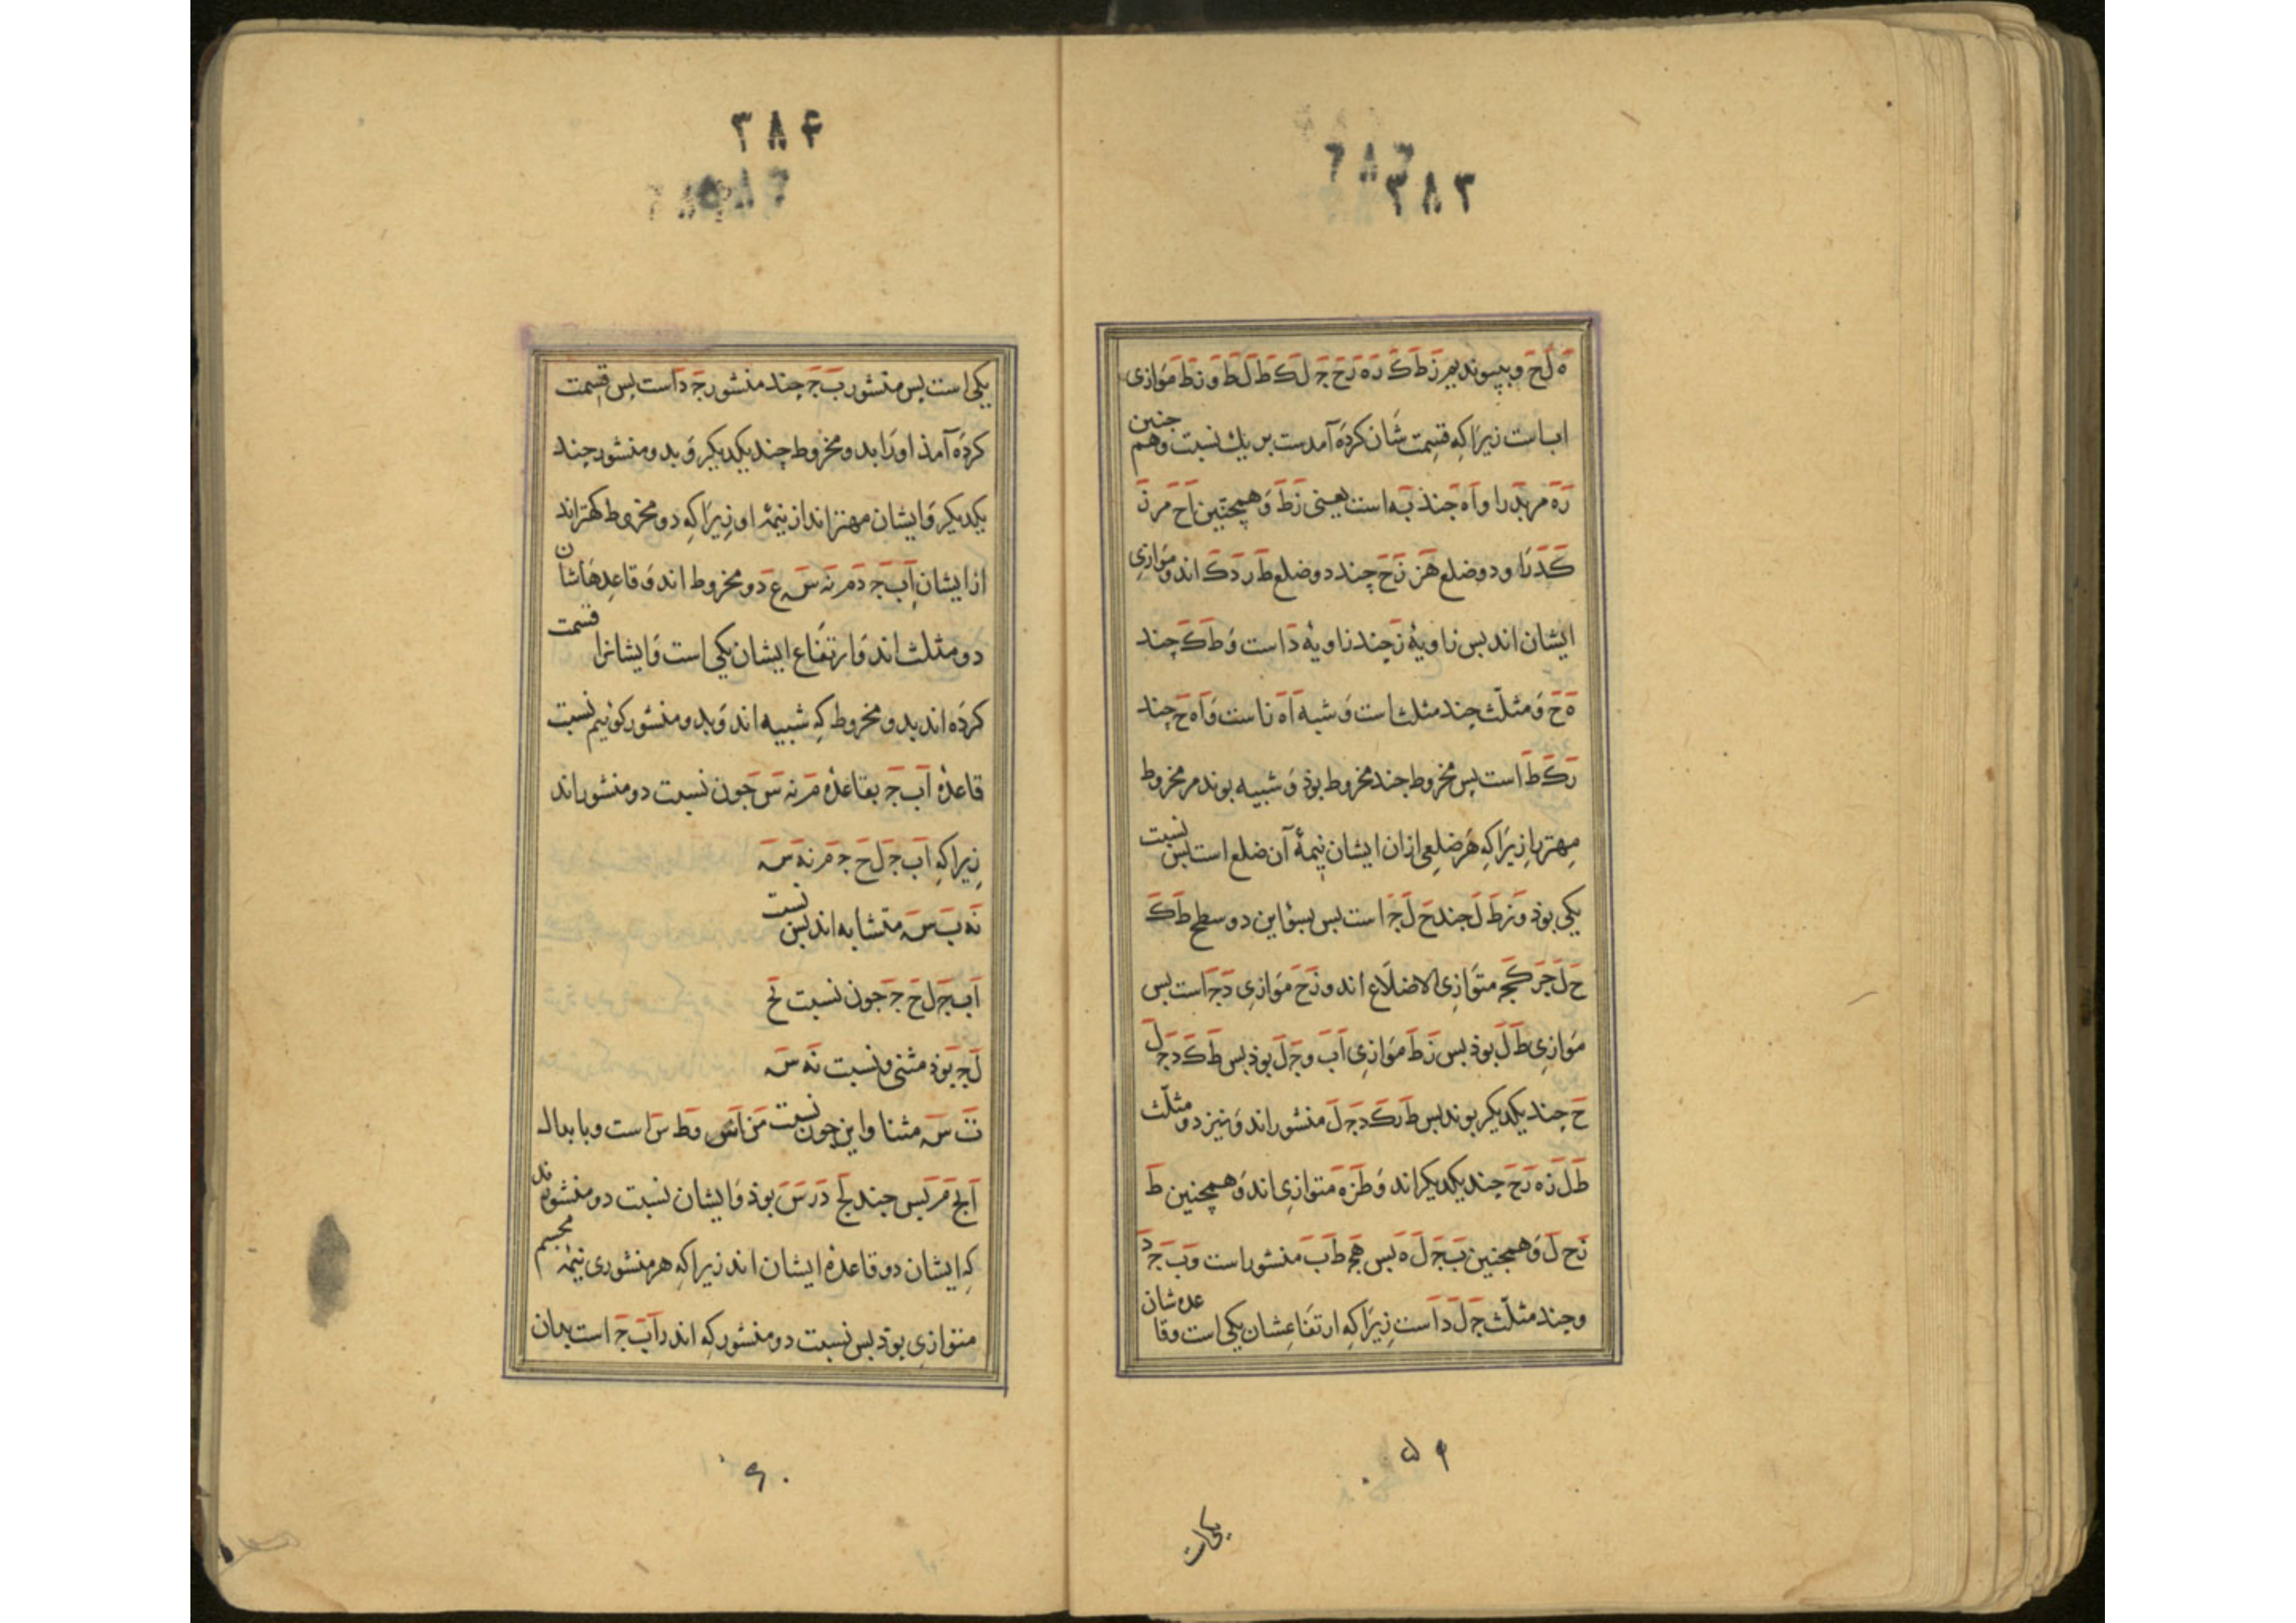 ۳۸۳
ه ل ح و بپیوندیم ز ط ک ر ه ز ح ج ل ک ط ل ط و ز ط موازی
اب است زیرا که قسمت شان کرده آمدست بر یك نسبت وهم چنین
ره مر بد را و اه چند به است یعنی ز ط و همچنین اح مر ز
کد را و دو ضلع هز زح چند دو ضلع ط ر د ک اند و موازی
ایشان اند بس زاویهٔ ز چند زاویهٔ د است و ط ک چند
ه ح و مثلّث چند مثلث است و شبه اه ز است و اه ح چند
ر ک ط است بس مخروط چند مخروط بوذ و شبیه بوند مر مخروط
مهتر را زیرا که هر ضلعی ازان ایشان نیمهٔ آن ضلع است بس نسبت
یکی بوذ و ز ط ل چند ح ل ج است بس بسؤ این دو سطح ط ک
ح ل ج متوازی الاضلاع اند و ز ح موازی د ج است بس
موازی ط ل بوذ بس ز ط موازی اب و ج ل بوذ بس ط ک د ج ل
ح چند یکدیکر بوند بس ط ر ک د ج ل منشور اند و نیز دو مثلّث
ط ل ز ه ز ح چند یکدیکر اند و ط ز ه متوازی اند و همچنین ط
ز ح ل و همچنین ب ج ل ه بس ه ج ط ب منشور است و ب ج د
و چند مثلّث ج ل د است زیرا که ارتفاعشان یکی است و قاعده شان
۵۹
یکی است
۳۸۴
یکی است بس منشور ب ج چند منشور ج د است بس قسمت
کرده آمذ او را بدو مخروط چند یکدیکر و بدو منشور چند
یکدیکر و ایشان مهتر اند از نیمهٔ او زیرا که دو مخروط کهتر اند
از ایشان اب ج د م ن س ع دو مخروط اند و قاعدهاشان
دو مثلث اند و ارتفاع ایشان یکی است و ایشانرا قسمت
کرده اند بدو مخروط که شبیه اند و بدو منشور کوئیم نسبت
قاعدهٔ اب ج بقاعدهٔ م ن س چون نسبت دو منشور اند
زیرا که اب ج ل ح ج م ن ه س
ن ه ب س متشابه اند بس نسبت
اب ج ل ح ج چون نسبت ل ح
ل ج بوذ مثنی و نسبت ن ه س
ن س مثنا و این چون نسبت من اس و ط س است و بابدال
اب ج م ر س چند ل ج د ر س بوذ و ایشان نسبت دو منشور اند
که ایشان دو قاعدهٔ ایشان اند زیرا که هر منشوری نیمهٔ مجسم
متوازی بوذ بس نسبت دو منشور که اندر اب ج است بدان
۶۰